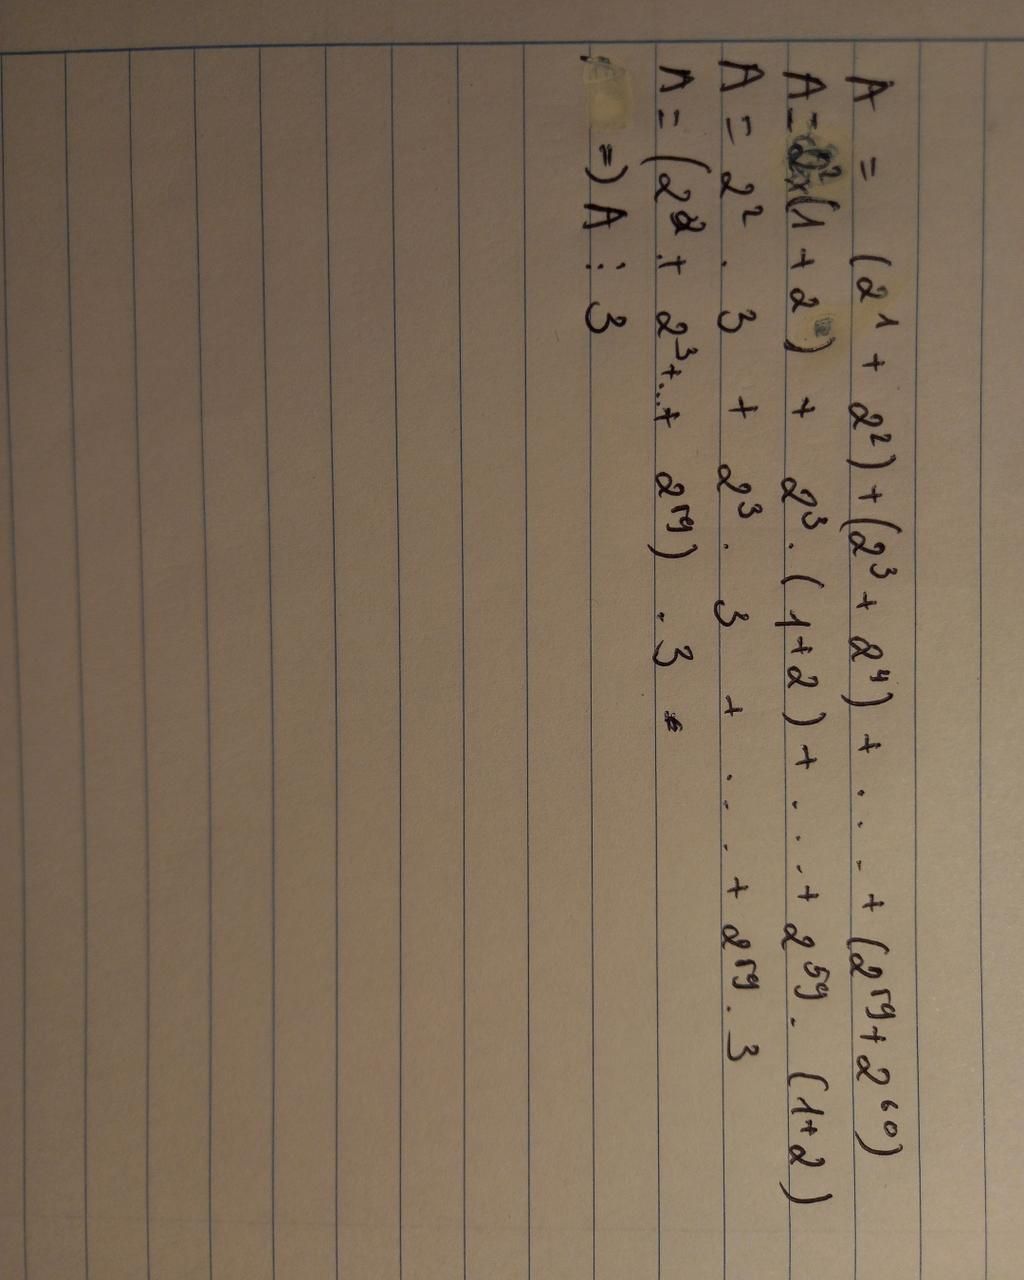 A = (2¹ + 2²) + (2³ + 2⁴) + ... + (2⁵⁹ + 2⁶⁰)
A = 2² (1 + 2) + 2³ . (1 + 2) + ... + 2⁵⁹ . (1 + 2)
A = 2² . 3 + 2³ . 3 + ... + 2⁵⁹ . 3
A = (2² + 2³ + ... + 2⁵⁹) . 3
=> A ⋮ 3